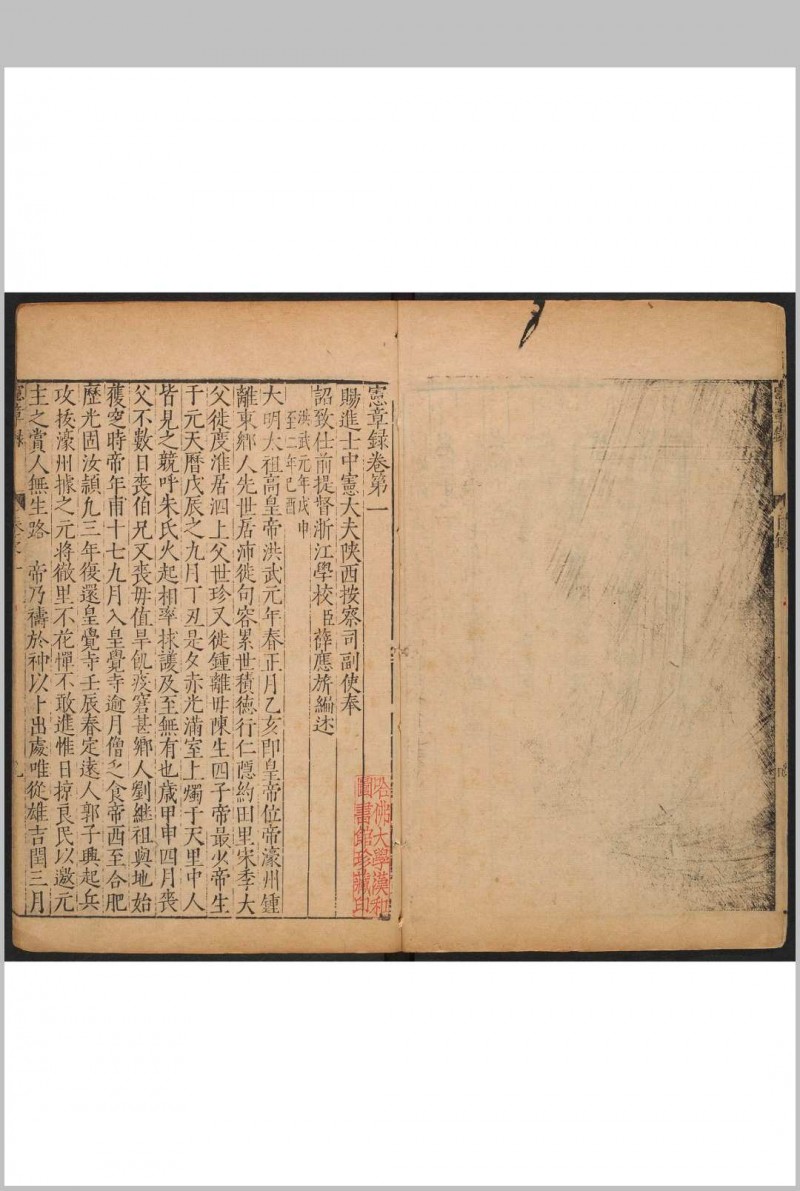 憲章録卷第一
賜進士中憲大夫陝西按察司副使奉
詔致仕前提督浙江學校臣薛應旂編述
洪武元年戊申
至二年己酉
大明太祖高皇帝洪武元年春正月乙亥即皇帝位帝濠州鍾
離東鄉人先世居沛徙句容累世積德行仁隱約田里宋季大
父徙度淮居泗上父世珍又徙鍾離毋陳生四子帝最少帝生
于元天曆戊辰之九月丁丑是夕赤光滿室上燭于天里中人
皆見之競呼朱氏火起相率捄護及至無有也歲甲申四月喪
父不數日喪伯兄又喪毋值旱飢疫窘甚鄉人劉繼祖與地始
獲窆時帝年甫十七九月入皇覺寺逾月僧乏食帝西至合肥
歷光固汝頴九三年復還皇覺寺壬辰春定遠人郭子興起兵
攻拔濠州據之元將徹里不花憚不敢進惟日掠良民以邀元
主之賞人無生路 帝乃禱於神以卜出處唯從雄吉閏三月
憲章録
卷之一
九
目録
哈佛大學漢和
圖書館珍藏印